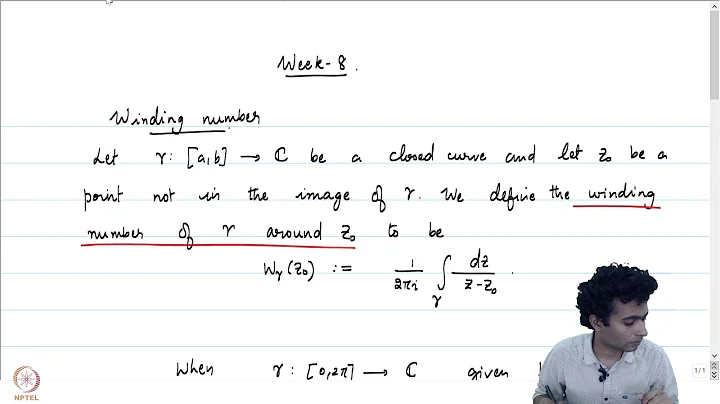 Week-8.
Winding number
Let γ: [a,b] → ℂ be a closed curve and let z₀ be a
point not in the image of γ. We define the winding
number of γ around z₀ to be
W_γ(z₀) := 1/2πi ∫_γ dz/z-z₀.
When γ: [0,2π] → ℂ given
1/1
NPTEL